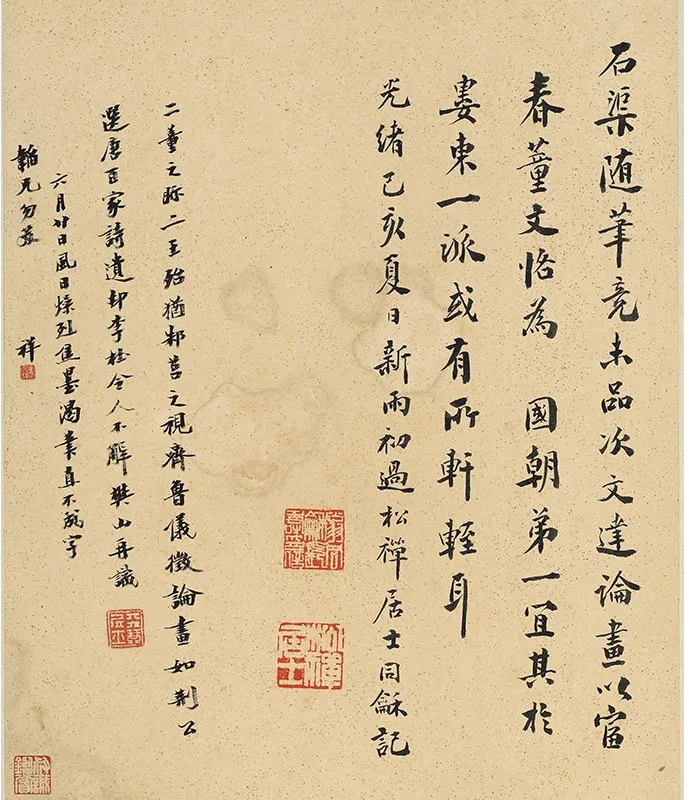 石渠随筆竟未品次文達論畫以富
春董文恪為 國朝弟一宜其於
婁東一派或有所軒輊耳
光緒己亥夏日新雨初過松禪居士同龢記
二董之眎二王殆猶邾莒之視齊魯儀徵論畫如荆公
選唐百家詩遺却李杜令人不解樊山再識
六月廿日風日燥烈焦墨渴業直不成字
韜兄勿姍 祥
松禪居士